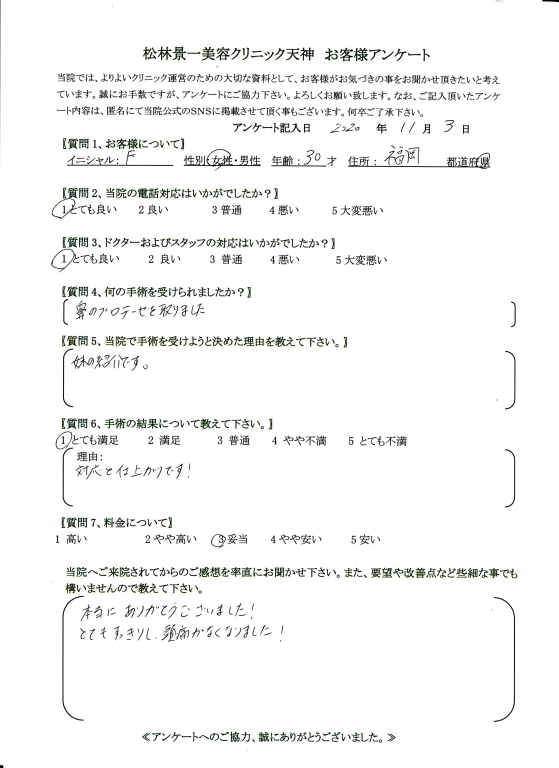 松林景一美容クリニック天神 お客様アンケート
当院では、よりよいクリニック運営のための大切な資料として、お客様がお気づきの事をお聞かせ頂きたいと考え
ています。誠にお手数ですが、アンケートにご協力下さい。よろしくお願い致します。なお、ご記入頂いたアンケ
ート内容は、匿名にて当院公式のSNSに掲載させて頂く事もございます。何卒ご了承下さい。
アンケート記入日 2020 年 11 月 3 日
【質問1、お客様について】
イニシャル: F 性別:女性・男性 年齢:30才 住所: 福岡 都道府県
【質問2、当院の電話対応はいかがでしたか?】
1とても良い 2 良い 3 普通 4 悪い 5 大変悪い
【質問3、ドクターおよびスタッフの対応はいかがでしたか?】
1とても良い 2 良い 3 普通 4 悪い 5 大変悪い
【質問4、何の手術を受けられましたか?】
鼻のプロテーゼを取りました
【質問5、当院で手術を受けようと決めた理由を教えて下さい。】
妹の紹介です。
【質問6、手術の結果について教えて下さい。】
1とても満足 2 満足 3 普通 4 やや不満 5 とても不満
理由:
対応と仕上がりです!
【質問7、料金について】
1 高い 2 やや高い 3妥当 4 やや安い 5 安い
当院へご来院されてからのご感想を率直にお聞かせ下さい。また、要望や改善点など些細な事でも
構いませんので教えて下さい。
本当に ありがとうございました!
とてもすっきりし、頭痛がなくなりました!
≪アンケートへのご協力、誠にありがとうございました。≫